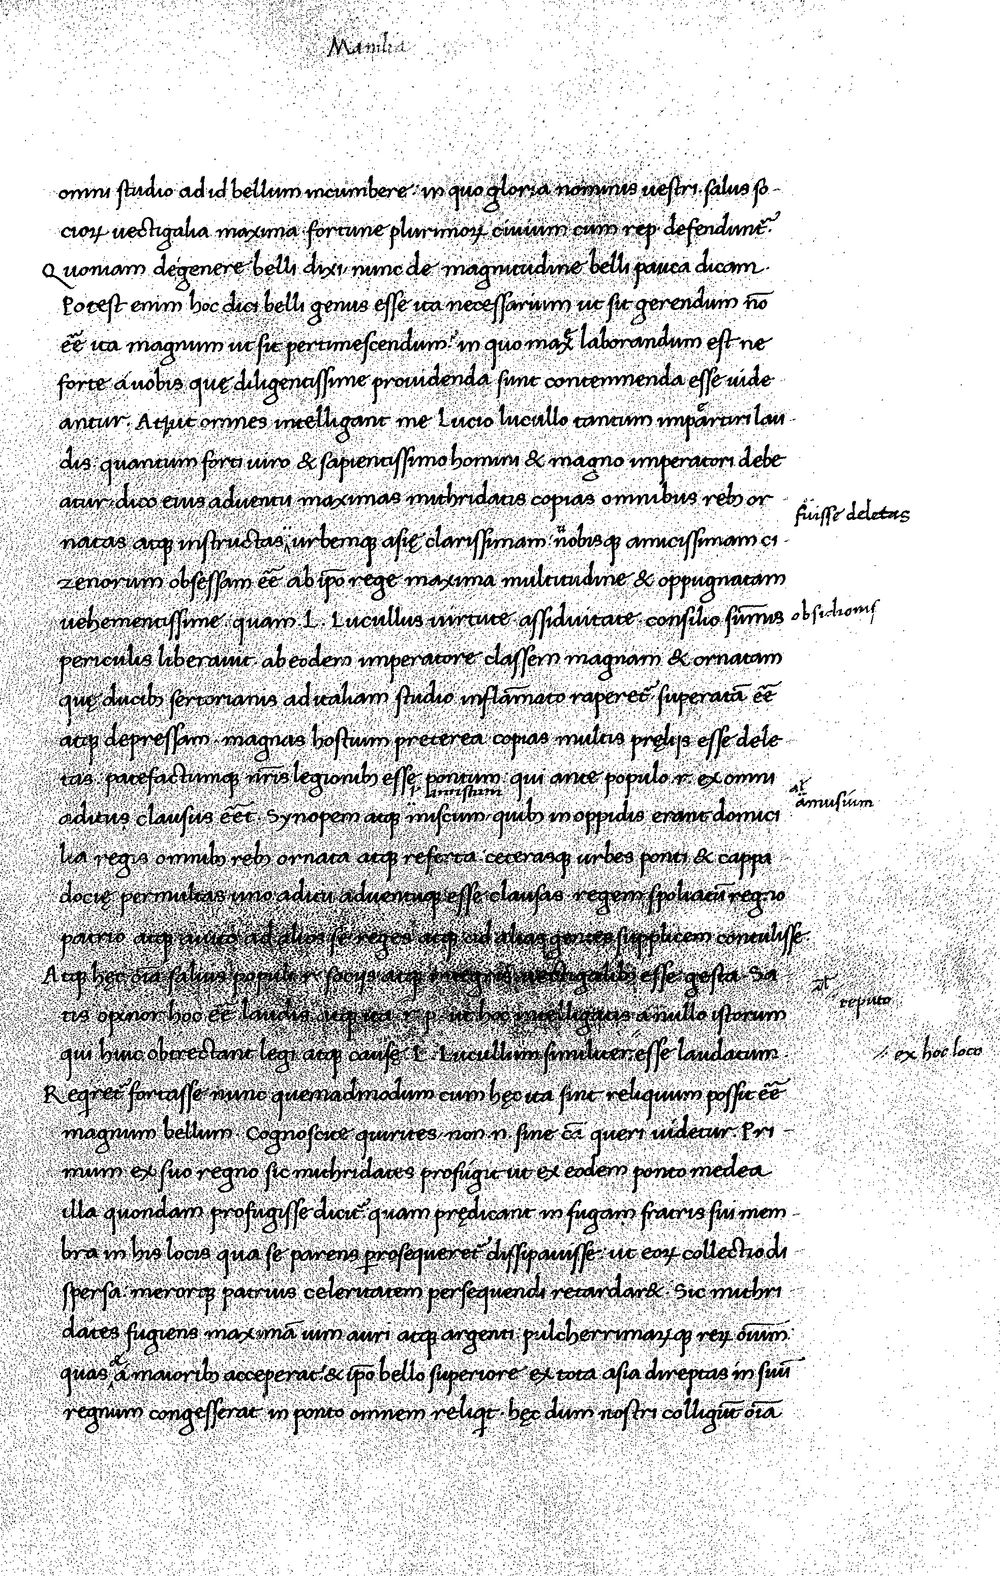 Manilia
omni studio ad id bellum incumbere· in quo gloria nominis uestri· salus so-
cioꝝ uectigalia maxima· fortune plurimoꝝ ciuium cum rep· defendunt᷑·
Quoniam de genere belli dixi· nunc de magnitudine belli pauca dicam·
Potest enim hoc dici belli genus esse ita necessarium ut sit gerendum· nō
eē ita magnum ut sit pertimescendum· in quo maxᷓ laborandum est ne
forte a uobis quę diligentissime prouidenda sunt contemnenda esse uide
antur· Atqꝫ ut omnes intelligant me Lucio lucullo tantum impartiri lau-
dis· quantum forti uiro & sapientissimo homini & magno imperatori debe
atur· dico eius aduentu maximas mithridatis copias omnibus rebꝫ or-
fuisse deletas
natas atqꝫ instructas urbemqꝫ asię clarissimam nobisqꝫ amicissimam ci-
zenorum obsessam eē ab ip̄o rege maxima multitudine & oppugnatam
uehementissime· quam· L· Lucullus uirtute assiduitate consilio sūmis
obsidionis
periculis liberauit· ab eodem imperatore classem magnam & ornatam
quę ducibꝫ sertorianis ad italiam studio inflāmato raperet᷑ superatā eē
atqꝫ depressam· magnas hostium preterea copias multis pręlijs esse dele
tas· patefactumqꝫ nr̄is legionibꝫ esse pontum· qui ante populo r· ex omni
aditus clausus eēt· Synopem atqꝫ iniscum quibꝫ in oppidis erant domici
amisum
al' amusium
lia regis omnibꝫ rebꝫ ornata atqꝫ referta ceterasqꝫ urbes ponti & cappa
docię permultas uno aditu aduentuqꝫ esse clausas· regem spoliatū regno
patrio atqꝫ auito ad alios se reges atqꝫ ad alias gentes supplicem contulisse·
Atqꝫ hęc oīa saluis populi r· socijs atqꝫ integris uectigalibꝫ esse gesta· Sa
tis opinor hoc eē laudis atqꝫ ita· r· p· ut hoc intelligatis a nullo istorum
al' reputo
qui huic obtrectant legi atqꝫ cause· L· Lucullum similiter esse laudatum·
ex hoc loco
Reqret᷑ fortasse nunc quemadmodum cum hęc ita sint reliquum possit eē
magnum bellum· Cognoscite quirites· non· n· sine cā queri uidetur· Pri-
mum ex suo regno sic mithridates profugit ut ex eodem ponto medea
illa quondam profugisse dicit᷑ quam prędicant in fugam fratris sui mem-
bra in his locis qua se parens prosequeret᷑ dissipauisse· ut eoꝝ collectio di
spersa· merorqꝫ patrius celeritatem persequendi retardar&· Sic mithri-
dates fugiens maximā uim auri atqꝫ argenti· pulcherrimaꝝqꝫ reꝝ oīum
quas a maioribꝫ acceperat· & ip̄o bello superiore ex tota asia direptas in suū
regnum congesserat in ponto omnem reliqit· hęc dum nostri colligūt oīa